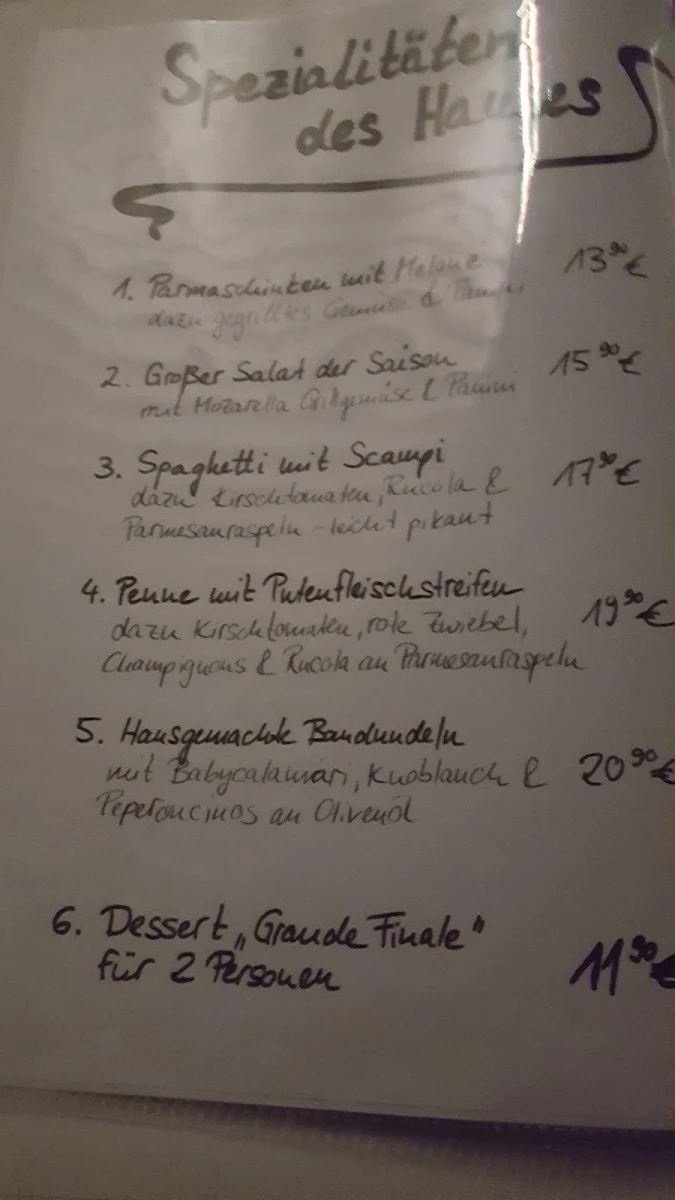 Spezialitäten
des Hauses
1. Parmaschinken mit Melone 13⁹⁰€
dazu gegrilltes Gemüse & Panini
2. Großer Salat der Saison 15⁹⁰€
mit Mozarella Grillgemüse & Panini
3. Spaghetti mit Scampi 17⁹⁰€
dazu Kirschtomaten, Rucola &
Parmesanraspeln - leicht pikant
4. Penne mit Putenfleischstreifen 19⁹⁰€
dazu Kirschtomaten, rote Zwiebel,
Champignons & Rucola an Parmesanraspeln
5. Hausgemachte Bandnudeln
mit Babycalamari, Knoblauch & 20⁹⁰€
Peperoncinos an Olivenöl
6. Dessert „Grande Finale"
für 2 Personen 11⁹⁰€